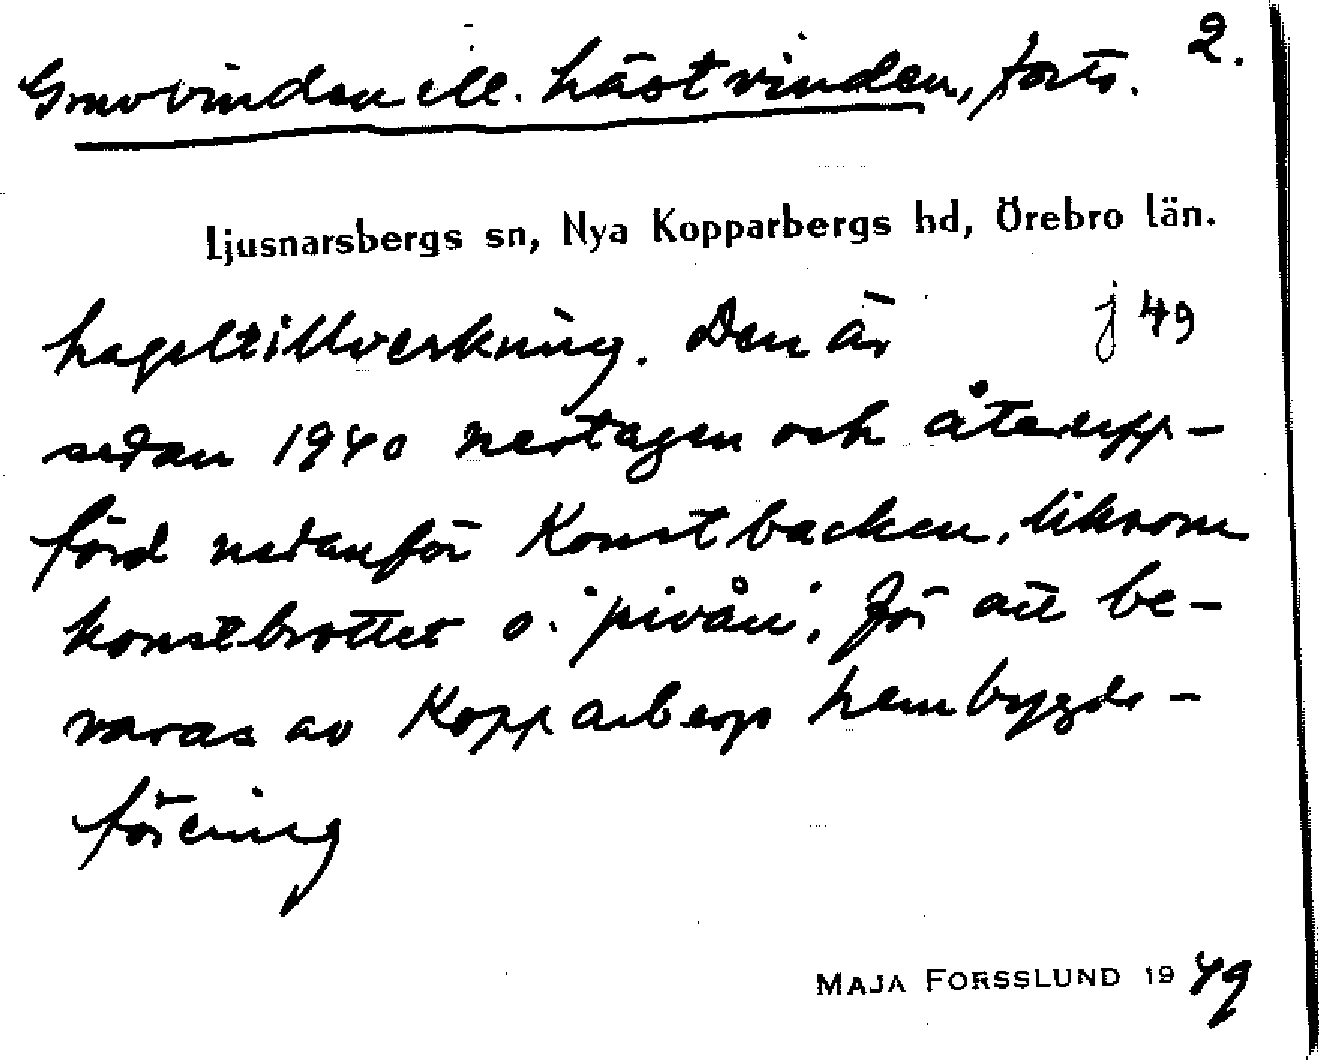 Gruvvinden ell. hästvinden, forts. 2.
Ljusnarsbergs sn, Nya Kopparbergs hd, Örebro län.
hageltillverkning. Den är j 49
sedan 1940 nertagen och återupp-
förd nedanför Konstbacken, liksom
konstbrottet o. "pivån", för att be-
varas av Kopparbergs hembygds-
förening
MAJA FORSSLUND 1949